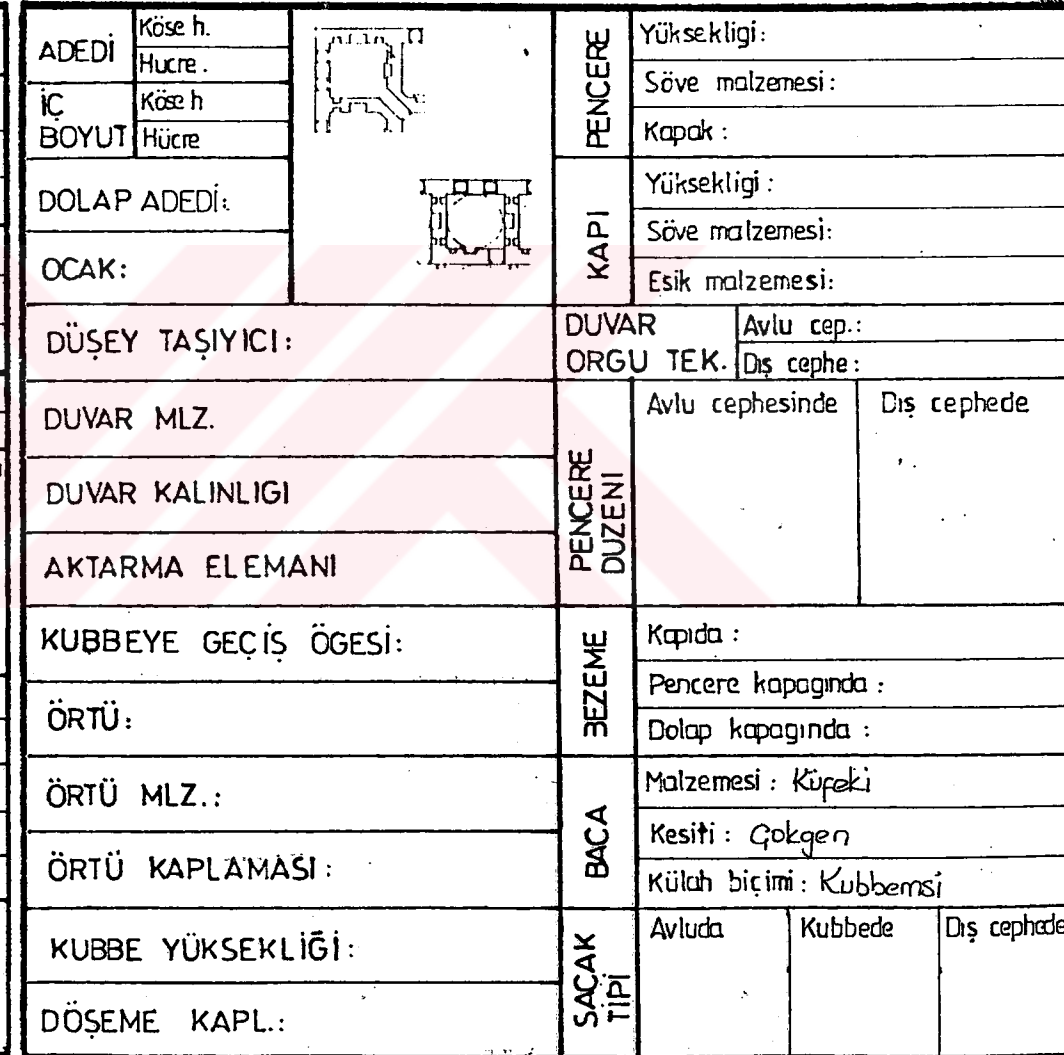 ADEDİ
Köşe h.
Hucre.
İÇ BOYUT
Köşe h
Hücre
DOLAP ADEDİ:
OCAK:
DÜŞEY TAŞIYICI:
DUVAR MLZ.
DUVAR KALINLIGI
AKTARMA ELEMANI
KUBBEYE GEÇİŞ ÖGESİ:
ÖRTÜ:
ÖRTÜ MLZ.:
ÖRTÜ KAPLAMASI:
KUBBE YÜKSEKLİĞİ:
DÖŞEME KAPL.:
PENCERE
Yüksekligi:
Söve malzemesi:
Kapak:
KAPI
Yüksekligi:
Söve malzemesi:
Esik malzemesi:
DUVAR
ORGU TEK.
Avlu cep.:
Dış cephe:
PENCERE
DUZENI
Avlu cephesinde
Dış cephede
BEZEME
Kapıda:
Pencere kapagında:
Dolap kapagında:
BACA
Malzemesi: Küfeki
Kesiti: Çokgen
Külah biçimi: Kubbemsi
SAÇAK
TİPİ
Avluda
Kubbede
Dış cephede